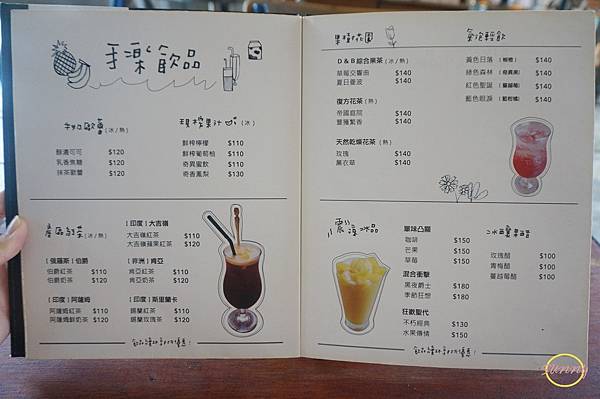 手藥飲品
歐蕾 (冰/熱)
醇濃可可 $120
乳香焦糖 $120
抹茶歐蕾 $120
現榨果汁 (冰)
鮮榨檸檬 $110
鮮榨葡萄柚 $110
奇異蜜飲 $110
奇香鳳梨 $130
產區紅茶 (冰/熱)
[俄羅斯] 伯爵
伯爵紅茶 $110
伯爵奶茶 $120
[印度] 阿薩姆
阿薩姆紅茶 $110
阿薩姆鮮奶茶 $120
[印度] 大吉嶺
大吉嶺紅茶 $110
大吉嶺蘋果紅茶 $120
[非洲] 肯亞
肯亞紅茶 $110
肯亞奶茶 $120
[印度] 斯里蘭卡
錫蘭紅茶 $110
錫蘭玫瑰茶 $120
果樹花園
D & B 綜合果茶 (冰/熱)
草莓交響曲 $140
夏日曼波 $140
復方花茶 (熱)
帝國庭院 $140
豐獲繁香 $140
天然乾燥花茶 (熱)
玫瑰 $140
薰衣草 $140
氣泡輕飲
黃色日落 (柳橙) $140
綠色森林 (奇異果) $140
紅色聖誕 (蔓越莓) $140
藍色眼淚 (藍柑橘) $140
震涼冰品
單味凸籠
咖啡 $150
芒果 $150
草莓 $150
混合衝擊
黑夜爵士 $180
季節狂想 $180
狂歡聖代
不朽經典 $130
水果傳情 $150
冰釀果醋
玫瑰醋 $100
青梅醋 $100
蔓越莓醋 $100